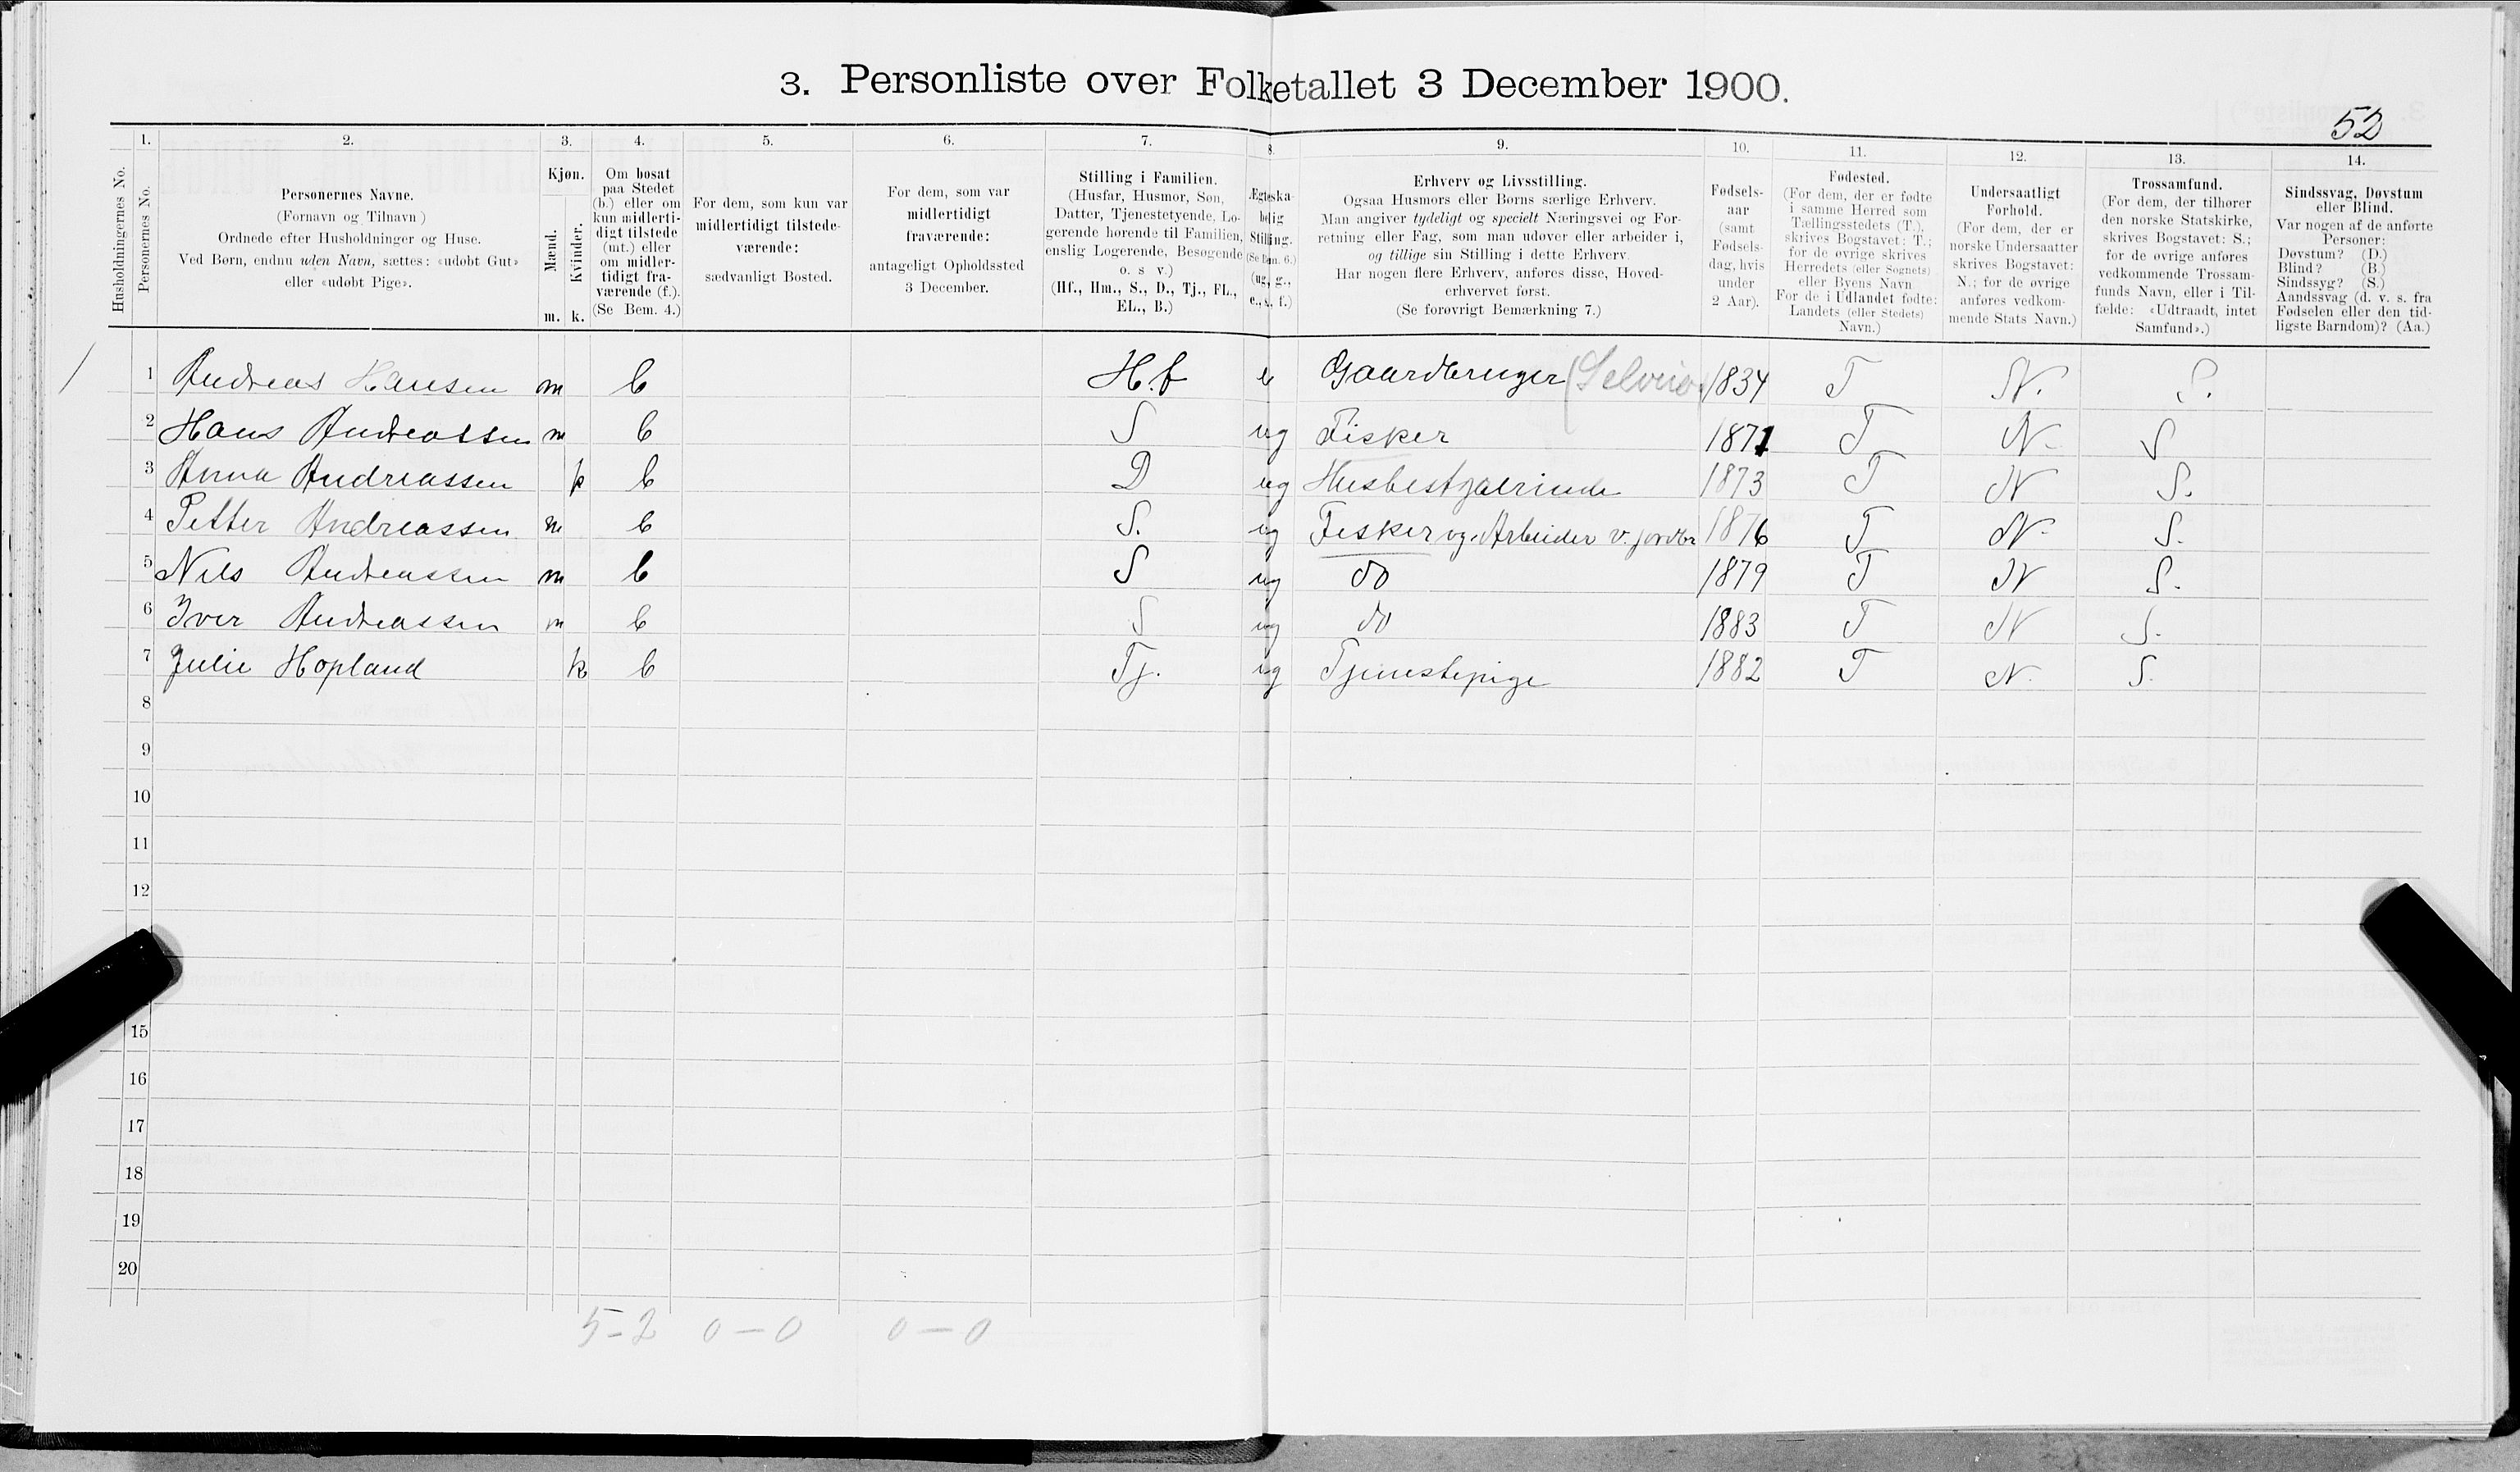 3. Personliste over Folketallet 3 December 1900.
52
Husholdningernes No.
1.
Personernes No.
2.
Personernes Navne.
(Fornavn og Tilnavn)
Ordnede efter Husholdninger og Huse.
Ved Børn, endnu uden Navn, sættes: «udøbt Gut»
eller «udøbt Pige».
3.
Kjøn.
Mænd.
Kvinder.
m. k.
4.
Om bosat
paa Stedet
(b.) eller om
kun midlerti-
digt tilstede
(mt.) eller
om midler-
tidigt fra-
værende (f.).
(Se Bem. 4.)
5.
For dem, som kun var
midlertidigt tilstede-
værende:
sædvanligt Bosted.
6.
For dem, som var
midlertidigt
fraværende:
antageligt Opholdssted
3 December.
7.
Stilling i Familien.
(Husfar, Husmor, Søn,
Datter, Tjenestetyende, Lo-
gerende hørende til Familien,
enslig Logerende, Besøgende
o. s v.)
(Hf., Hm., S., D., Tj., FL.,
EL., B.)
8.
Ægteska-
belig
Stilling.
(Se Bem. 6.)
(ug., g.,
e., s., f.)
9.
Erhverv og Livsstilling.
Ogsaa Husmors eller Børns særlige Erhverv.
Man angiver tydeligt og specielt Næringsvei og For-
retning eller Fag, som man udøver eller arbeider i,
og tillige sin Stilling i dette Erhverv.
Har nogen flere Erhverv, anføres disse, Hoved-
erhvervet først.
(Se forøvrigt Bemærkning 7.)
10.
Fødsels-
aar
(samt
Fødsels-
dag, hvis
under
2 Aar).
11.
Fødested.
(For dem, der er fødte
i samme Herred som
Tællingsstedets (T.),
skrives Bogstavet: T.;
for de øvrige skrives
Herredets (eller Sognets)
eller Byens Navn
For de i Udlandet fødte:
Landets (eller Stedets)
Navn.)
12.
Undersaatligt
Forhold.
(For dem, der er
norske Undersaatter
skrives Bogstavet:
N.; for de øvrige
anføres vedkom-
mende Stats Navn.)
13.
Trossamfund.
(For dem, der tilhører
den norske Statskirke,
skrives Bogstavet: S.;
for de øvrige anføres
vedkommende Trossam-
funds Navn, eller i Til-
fælde: «Udtraadt, intet
Samfund».)
14.
Sindssvag, Døvstum
eller Blind.
Var nogen af de anførte
Personer:
Døvstum? (D.)
Blind? (B.)
Sindssyg? (S.)
Aandssvag (d. v. s. fra
Fødselen eller den tid-
ligste Barndom)? (Aa.)
1 Andreas Hansen m b H.f e Gaardbruger (Selveier) 1834 T N. S.
2 Hans Andreassen m b S ug Fisker 1871 T N. S
3 Anna Andreassen k b D ug Husbestyrerinde 1873 T N S.
4 Petter Andreassen m b S. ug Fisker og Arbeider v. jordbr 1876 T N. S.
5 Nils Andreassen m b S ug do 1879 T N S.
6 Iver Andreassen m b S ug do 1883 T N S.
7 Julie Hopland k b Tj. ug Tjenestepige 1882 T N. S.
8
9
10
11
12
15
16
17
18
19
20
5-2 0-0 0-0